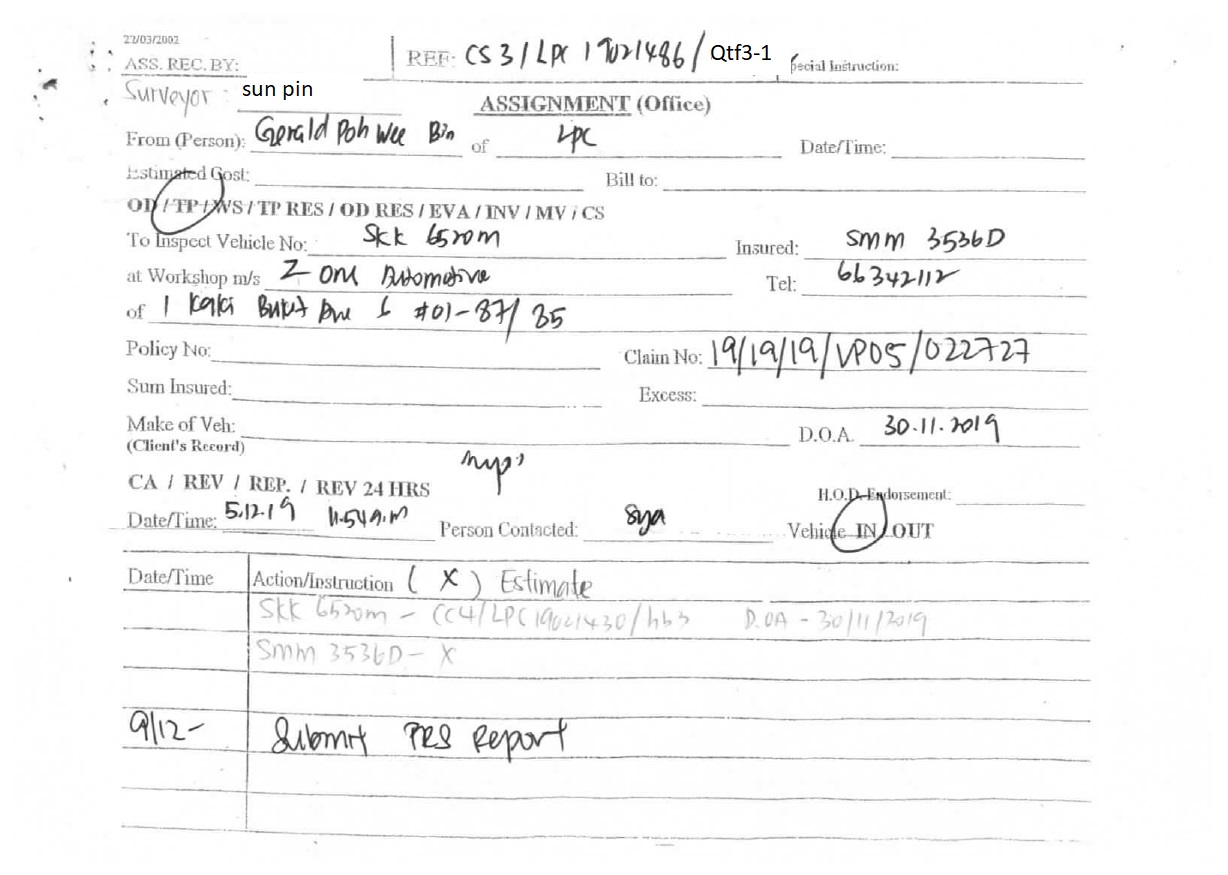 22/03/2002
ASS. REC. BY:
REF: CS3/LPC19021486/Qtf3-1
Special Instruction:
Surveyor: sun pin
ASSIGNMENT (Office)
From (Person): Gerald Poh Wee Bin of LPC Date/Time:
Estimated Cost: Bill to:
OD / TP / WS / TP RES / OD RES / EVA / INV / MV / CS
To Inspect Vehicle No: SKK 6520M Insured: SMM 3536D
at Workshop m/s Z One Automotive Tel: 66342112
of 1 Kaki Bukit Ave 6 #01-87/85
Policy No: Claim No: 19/19/19/VP05/022727
Sum Insured: Excess:
Make of Veh: D.O.A. 30.11.2019
(Client's Record)
CA / REV / REP. / REV 24 HRS
H.O.D. Endorsement:
Date/Time: 5.12.19 11.54a.m Person Contacted: Sya Vehicle IN / OUT
Date/Time Action/Instruction (X) Estimate
SKK 6520M - CC4/LPC19021430/hb3 D.OA - 30/11/2019
SMM 3536D - X
9/12- Submit PRS Report